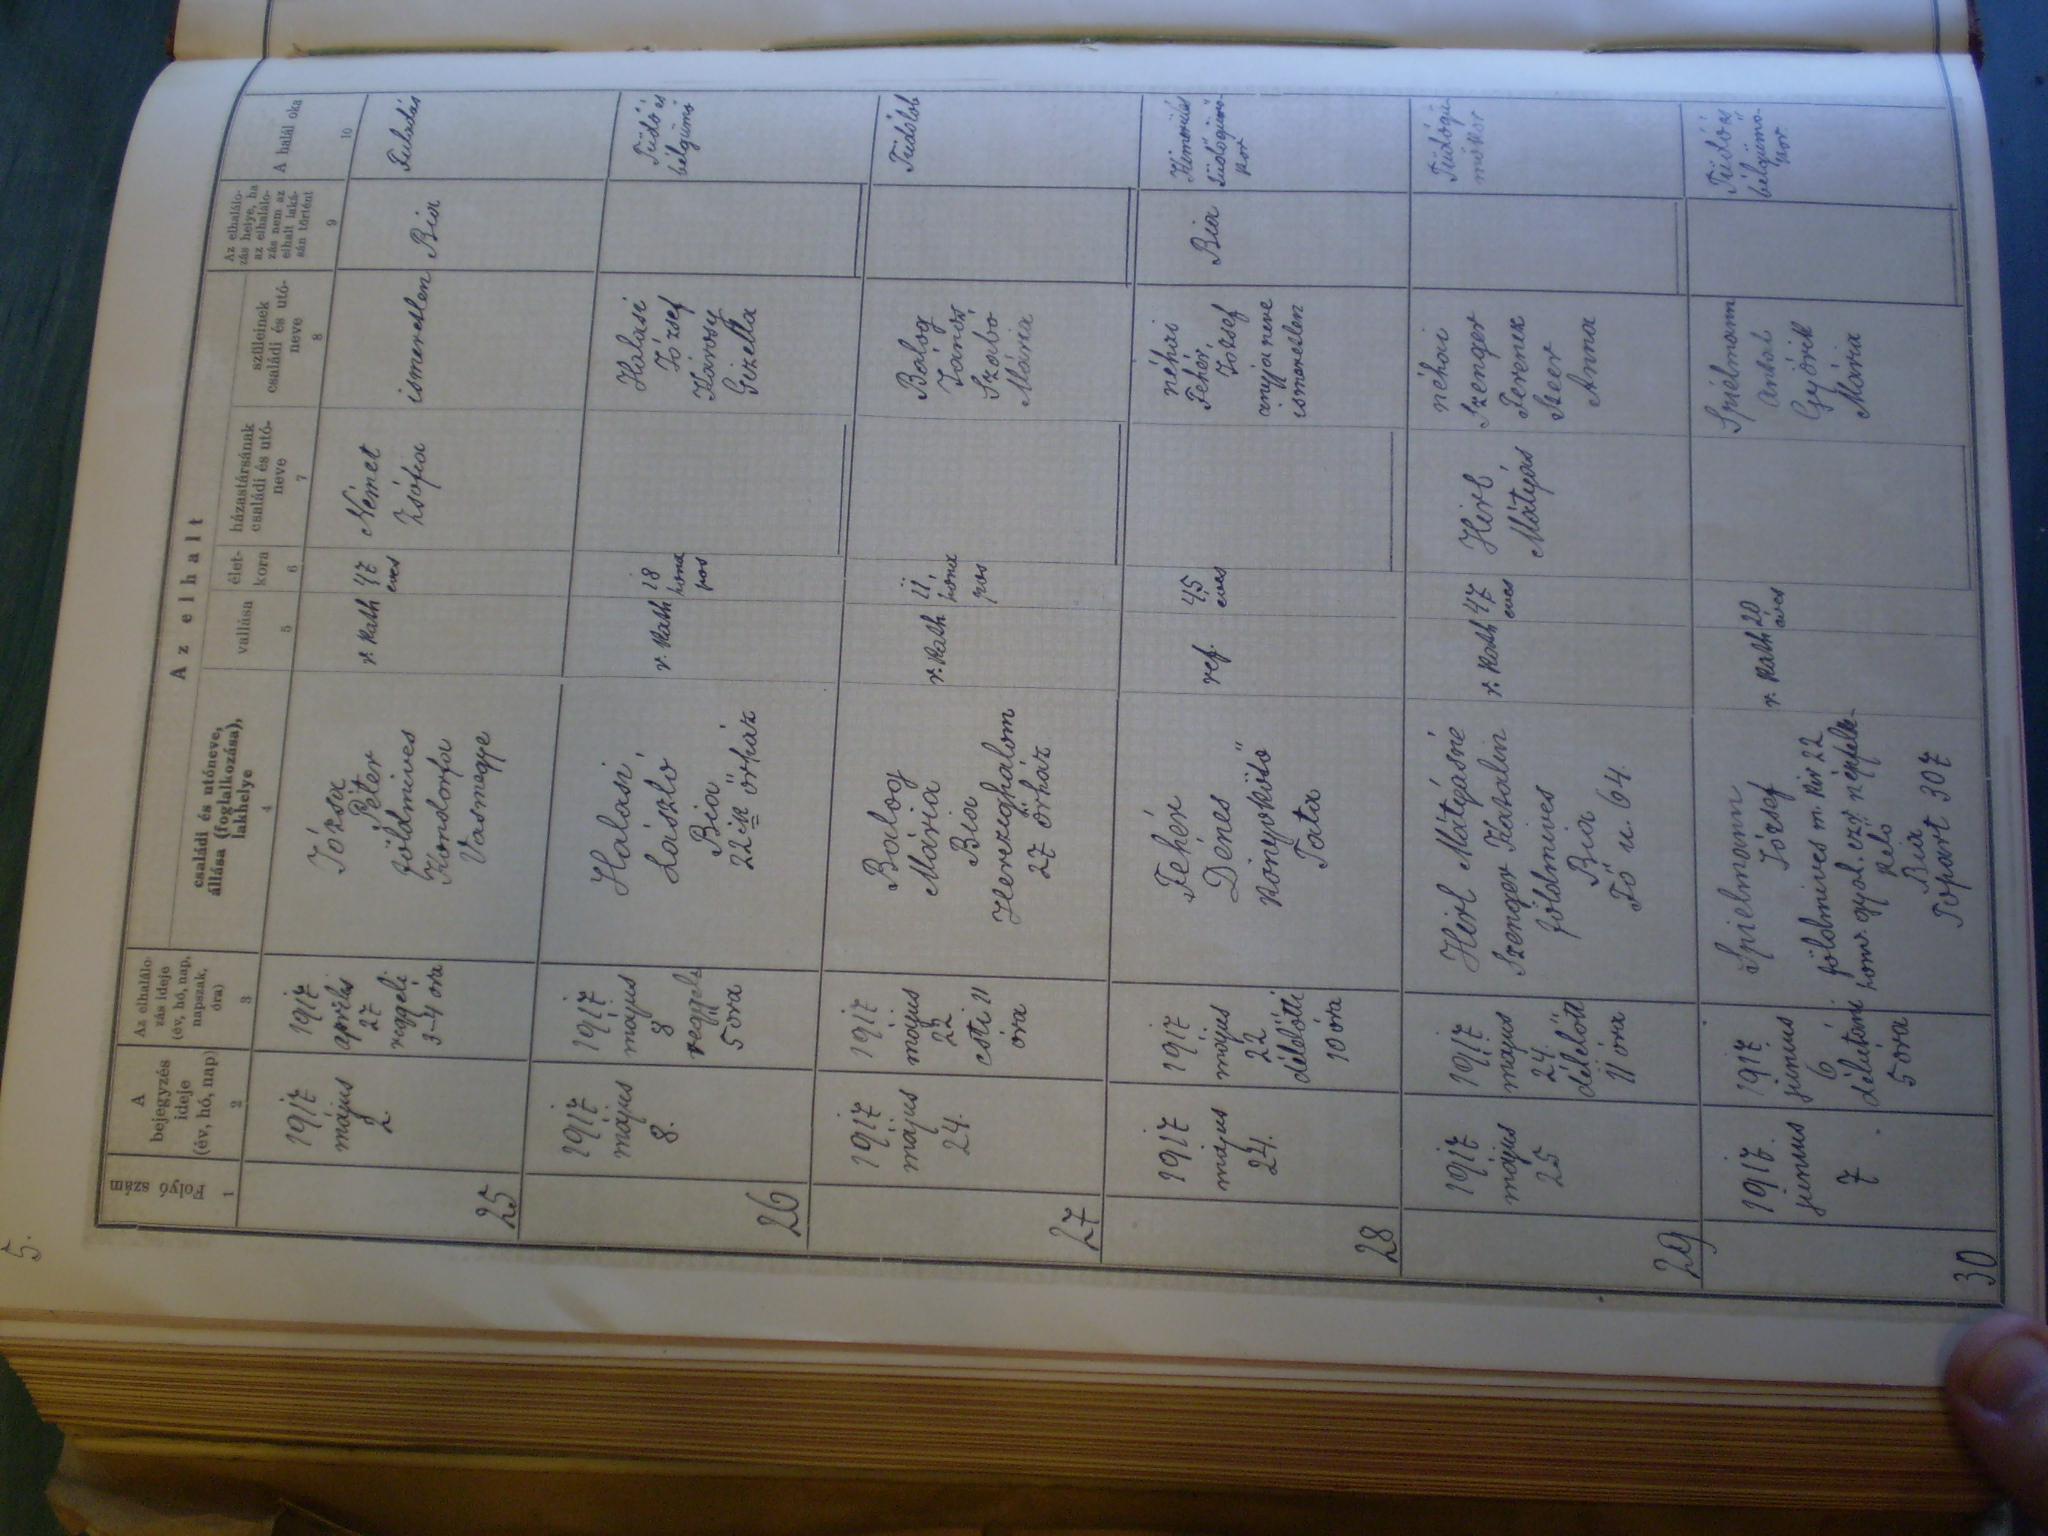 5.
Folyó szám
A bejegyzés ideje (év, hó, nap)
Az elhalálozás ideje (év, hó, nap, napszak, óra)
Az elhalt
családi és utóneve, állása (foglalkozása), lakhelye
vallása
életkora
házastársának családi és utóneve
szüleinek családi és utóneve
Az elhalálozás helye, ha az elhalálozás nem az elhalt lakásán történt
A halál oka
1 2 3 4 5 6 7 8 9 10
25
1917
május
2
1917
április
27
reggeli
3-4 óra
Józsa
Péter
földmives
Kondorfa
Vasmegye
r. kath
47
éves
Német
Zsófia
ismeretlen
Bia
Fuladás
26
1917
május
8.
1917
május
8
reggeli
5 óra
Halasi
László
Bia
22 ik őrház
r. kath
18
hóna
pos
Halasi
József
Károsy
Gizella
Tüdő és
bélgümő
27
1917
május
24.
1917
május
22
esti 11
óra
Balog
Mária
Bia
Herczeghalom
27 őrház
r. kath
11,
hóna
pos
Balog
János
Szabó
Mária
Tüdőlob
28
1917
május
24.
1917
május
22
délelőtti
10 óra
Fehér
Dénes
könyvkötő
Tata
ref.
45
éves
néhai
Fehér
József
anyja neve
ismeretlen
Bia
tüdőgümő-
kór
29
1917
május
25
1917
május
24.
délelőtt
11 óra
Hirl Mátyásné
Szenger Katalin
földmives
Bia
Fő u. 64.
r. kath
47
éves
Hirl
Mátyás
néhai
Szenger
Ferencz
Anna
Tüdőgü-
mőkór
30
1917.
június
7
1917.
június
6
délutáni
5 óra
Spielmann
József
földmives m. kir 22
honv. gyal. ezr. népfelke-
lő
Bia
Tópart 307
r. kath
20
éves
Spielmann
Antal
Györik
Mária
Tüdő és
bélgümő-
kór